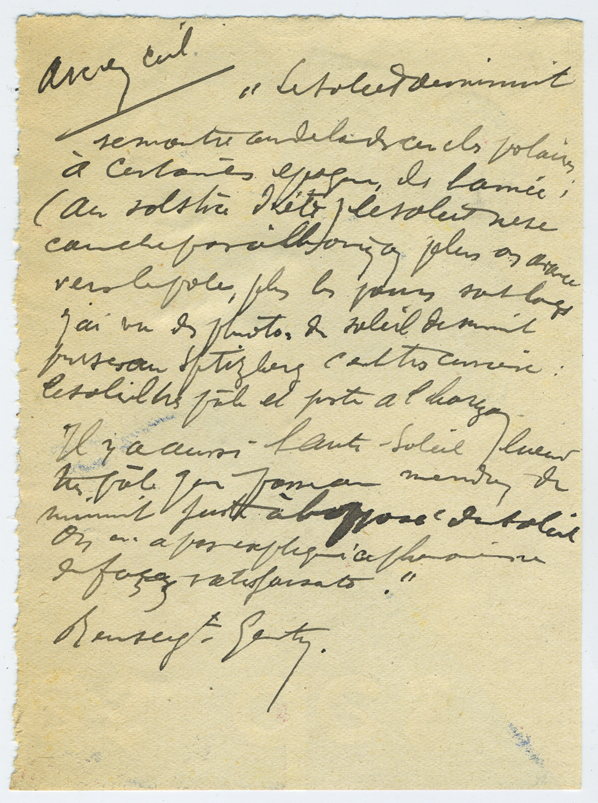 "Le Soleil de minuit
se montre au delà des cercles polaires
à certaines époques de l'année ;
(au solstice d'été) le soleil ne se
couche pas à l'horizon plus on avance
vers le pôle, plus les jours sont longs
j'ai vu des photos du soleil de minuit
prises au Spitzberg c'est très curieux :
le soleil très pâle et juste à l'horizon
Il y a aussi l'anti-Soleil lueur
très pâle au méridien de
minuit juste à l'opposé du soleil
On n'a pas expliqué ce phénomène
de façon satisfaisante."
Renseigt